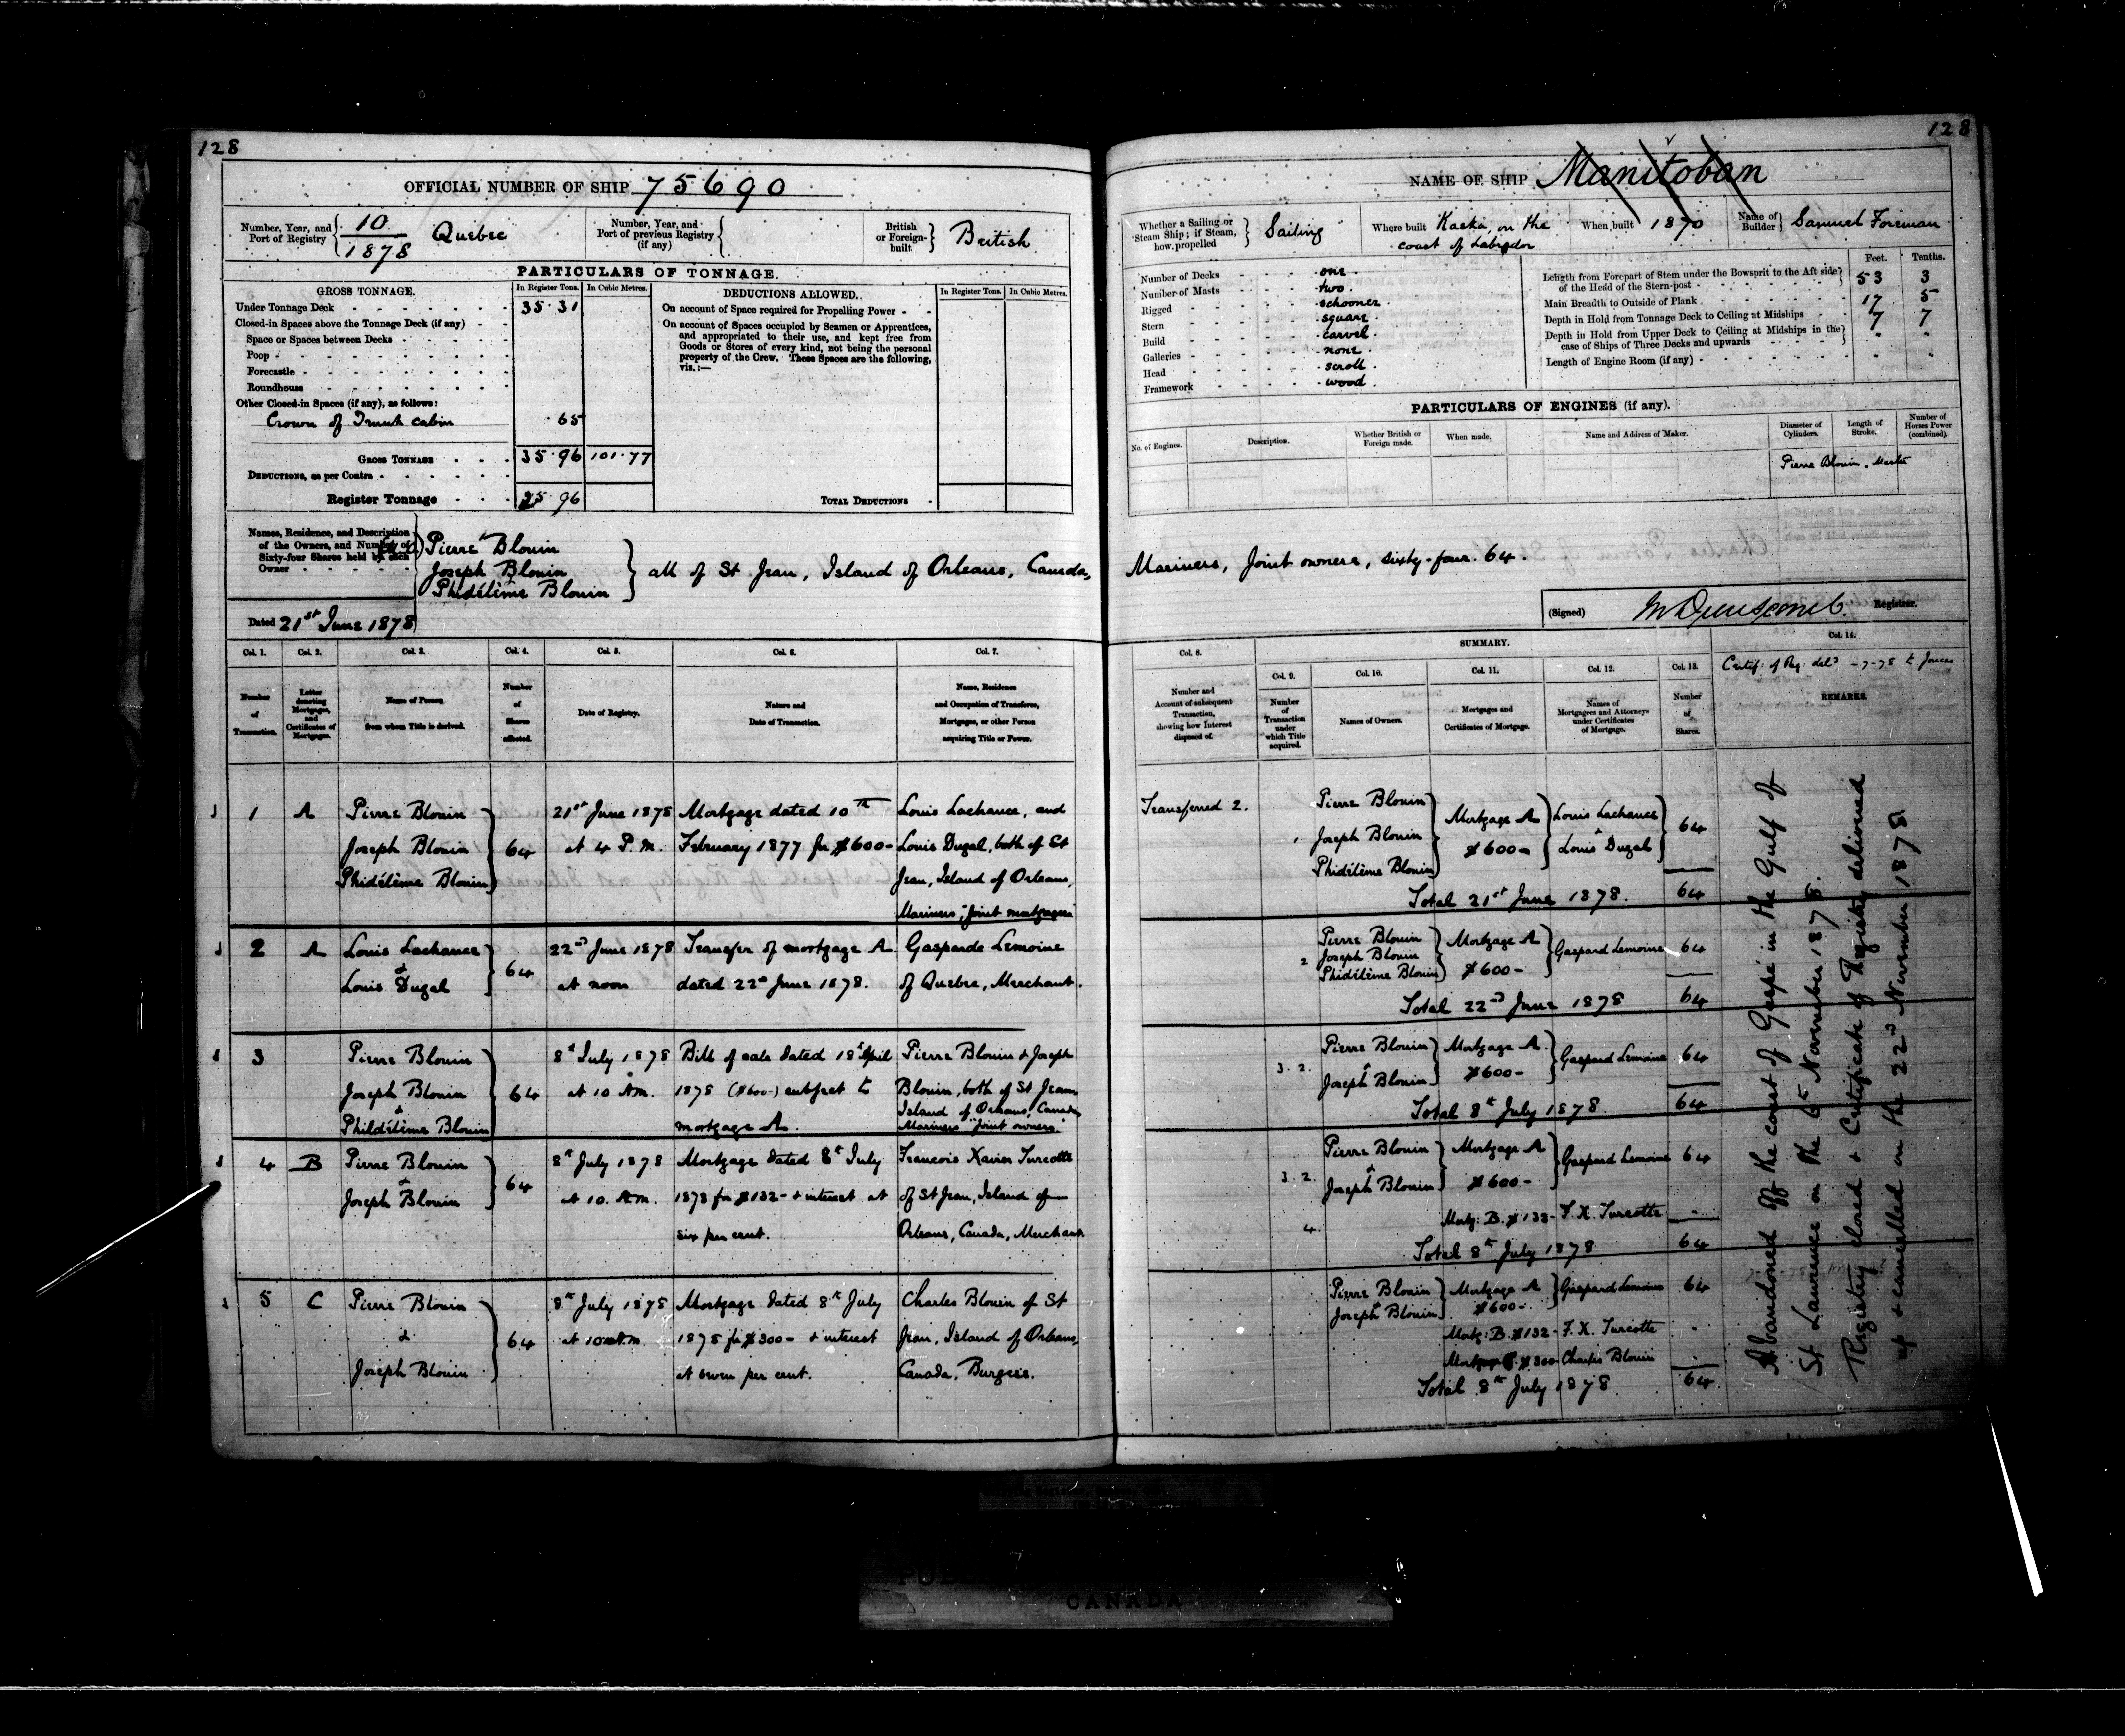 128
OFFICIAL NUMBER OF SHIP 75690
Number, Year, and Port of Registry 10/1878 Quebec
Number, Year, and Port of previous Registry (if any)
British or Foreign-built British
PARTICULARS OF TONNAGE.
GROSS TONNAGE. In Register Tons. In Cubic Metres.
Under Tonnage Deck 35.31
Closed-in Spaces above the Tonnage Deck (if any)
Space or Spaces between Decks
Poop
Forecastle
Roundhouse
Other Closed-in Spaces (if any), as follows:
Crown of Trunk cabin .65
GROSS TONNAGE 35.96 101.77
DEDUCTIONS, as per Contra
Register Tonnage 35.96
DEDUCTIONS ALLOWED. In Register Tons. In Cubic Metres.
On account of Space required for Propelling Power
On account of Spaces occupied by Seamen or Apprentices,
and appropriated to their use, and kept free from
Goods or Stores of every kind, not being the personal
property of the Crew. These Spaces are the following,
viz.:—
TOTAL DEDUCTIONS
Names, Residence, and Description
of the Owners, and Number of
Sixty-four Shares held by each
Owner
Pierre Blouin
Joseph Blouin
Phidélème Blouin
all of St Jean, Island of Orleans, Canada,
Dated 21st June 1878
Col. 1. Col. 2. Col. 3. Col. 4. Col. 5. Col. 6. Col. 7.
Number of Transaction.
Letter denoting Mortgages, and Certificates of Mortgages.
Name of Person from whom Title is derived.
Number of Shares affected.
Date of Registry.
Nature and Date of Transaction.
Name, Residence and Occupation of Transferee, Mortgagee, or other Person acquiring Title or Power.
1 A Pierre Blouin 21st June 1878 Mortgage dated 10th Louis Lachance, and
Joseph Blouin 64 at 4 P.M. February 1877 for $600- Louis Dugal, both of St
Phidélème Blouin Jean, Island of Orleans,
Mariners, "Joint mortgagees"
2 A Louis Lachance 22nd June 1878 Transfer of mortgage A Gasparde Lemoine
& 64
Louis Dugal at noon dated 22nd June 1878. of Quebec, Merchant.
3 Pierre Blouin 8th July 1878 Bill of sale dated 18th April Pierre Blouin & Joseph
Joseph Blouin 64 at 10 A.M. 1878 ($600-) subject to Blouin, both of St Jean
& Island of Orleans, Canada
Phildélème Blouin mortgage A. Mariners "Joint owners."
4 B Pierre Blouin 8th July 1878 Mortgage dated 8th July Francois Xavier Turcotte
& 64
Joseph Blouin at 10. A.M. 1878 for $132- & interest at of St Jean, Island of
six per cent. Orleans, Canada, Merchant
5 C Pierre Blouin 8th July 1878 Mortgage dated 8th July Charles Blouin of St
& 64 at 10 A.M. 1878 for $300- & interest Jean, Island of Orleans,
Joseph Blouin at seven per cent. Canada, Burgess.
128
NAME OF SHIP Manitoban
Whether a Sailing or Steam Ship; if Steam, how propelled Sailing
Where built Kaska, on the coast of Labrador
When built 1870
Name of Builder Samuel Foreman
Number of Decks one.
Number of Masts two.
Rigged schooner.
Stern square.
Build carvel.
Galleries none.
Head scroll.
Framework wood.
Feet. Tenths.
Length from Forepart of Stem under the Bowsprit to the Aft side of the Head of the Stern-post 53 3
Main Breadth to Outside of Plank 17 5
Depth in Hold from Tonnage Deck to Ceiling at Midships 7 7
Depth in Hold from Upper Deck to Ceiling at Midships in the case of Ships of Three Decks and upwards
Length of Engine Room (if any)
PARTICULARS OF ENGINES (if any).
No. of Engines. Description. Whether British or Foreign made. When made. Name and Address of Maker. Diameter of Cylinders. Length of Stroke. Number of Horses Power (combined).
Pierre Blouin. Master
Mariners, Joint owners, sixty-four. 64.
(Signed) Registrar.
SUMMARY.
Col. 8. Col. 9. Col. 10. Col. 11. Col. 12. Col. 13. Col. 14.
Number and Account of subsequent Transaction, showing how Interest disposed of.
Number of Transaction under which Title acquired.
Names of Owners.
Mortgages and Certificates of Mortgage.
Names of Mortgagees and Attorneys under Certificates of Mortgage.
Number of Shares.
REMARKS.
Transferred 2. Pierre Blouin
1 Joseph Blouin Mortgage A $600- Louis Lachance & Louis Dugal 64
Phidélème Blouin
Total 21st June 1878. 64
Pierre Blouin
2 Joseph Blouin Mortgage A $600- Gaspard Lemoine 64
Phidélème Blouin
Total 22nd June 1878 64
Pierre Blouin Mortgage A. Gaspard Lemoine 64
3. 2. & Joseph Blouin $600-
Total 8th July 1878. 64
Pierre Blouin Mortgage A Gaspard Lemoine 64
3. 2. & Joseph Blouin $600-
4 Mortg: B. $132- F. X. Turcotte -
Total 8th July 1878 64
Pierre Blouin Mortgage A Gaspard Lemoine 64
& Joseph Blouin $600-
Mortg: B. $132- F. X. Turcotte -
Mortgage C. $300- Charles Blouin -
Total 8th July 1878 64
Abandoned off the coast of Gaspé in the Gulf of
St Lawrence on the 6th November 1878.
Registry closed & Certificate of Registry delivered
up & cancelled on the 22nd November 1878.
CANADA